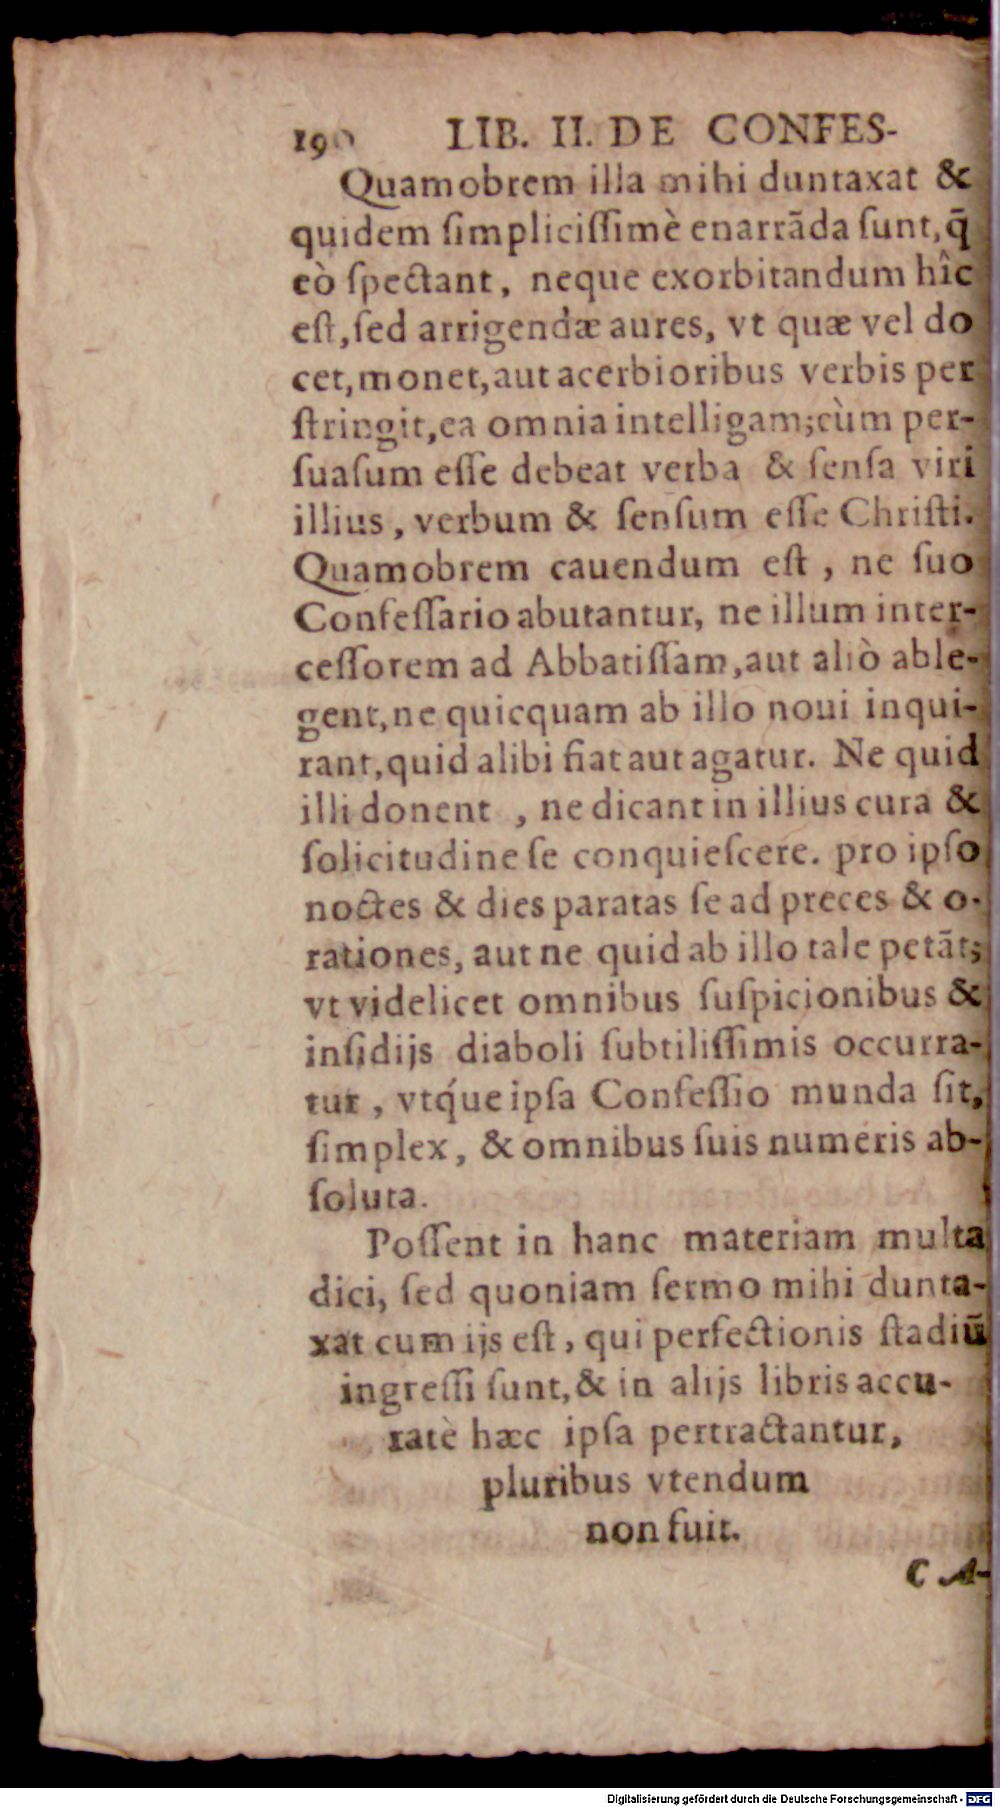 190 LIB. II. DE CONFES-
Quamobrem illa mihi duntaxat &
quidem ſimpliciſſimè enarrãda ſunt, q̃
eò ſpectant, neque exorbitandum hîc
eſt, ſed arrigendæ aures, vt quæ vel do
cet, monet, aut acerbioribus verbis per
ſtringit, ea omnia intelligam; cùm per-
ſuaſum eſſe debeat verba & ſenſa viri
illius, verbum & ſenſum eſſe Chriſti.
Quamobrem cauendum eſt, ne ſuo
Confeſſario abutantur, ne illum inter-
ceſſorem ad Abbatiſſam, aut aliò able-
gent, ne quicquam ab illo noui inqui-
rant, quid alibi fiat aut agatur. Ne quid
illi donent, ne dicant in illius cura &
ſolicitudine ſe conquieſcere. pro ipſo
noctes & dies paratas ſe ad preces & o-
rationes, aut ne quid ab illo tale petãt;
vt videlicet omnibus ſuſpicionibus &
inſidijs diaboli ſubtiliſſimis occurra-
tur, vtq́ue ipſa Confeſſio munda ſit,
ſimplex, & omnibus ſuis numeris ab-
ſoluta.
Poſſent in hanc materiam multa
dici, ſed quoniam ſermo mihi dunta-
xat cum ijs eſt, qui perfectionis ſtadiũ
ingreſſi ſunt, & in alijs libris accu-
ratè hæc ipſa pertractantur,
pluribus vtendum
non fuit.
CA-
Digitalisierung gefördert durch die Deutsche Forschungsgemeinschaft - DFG